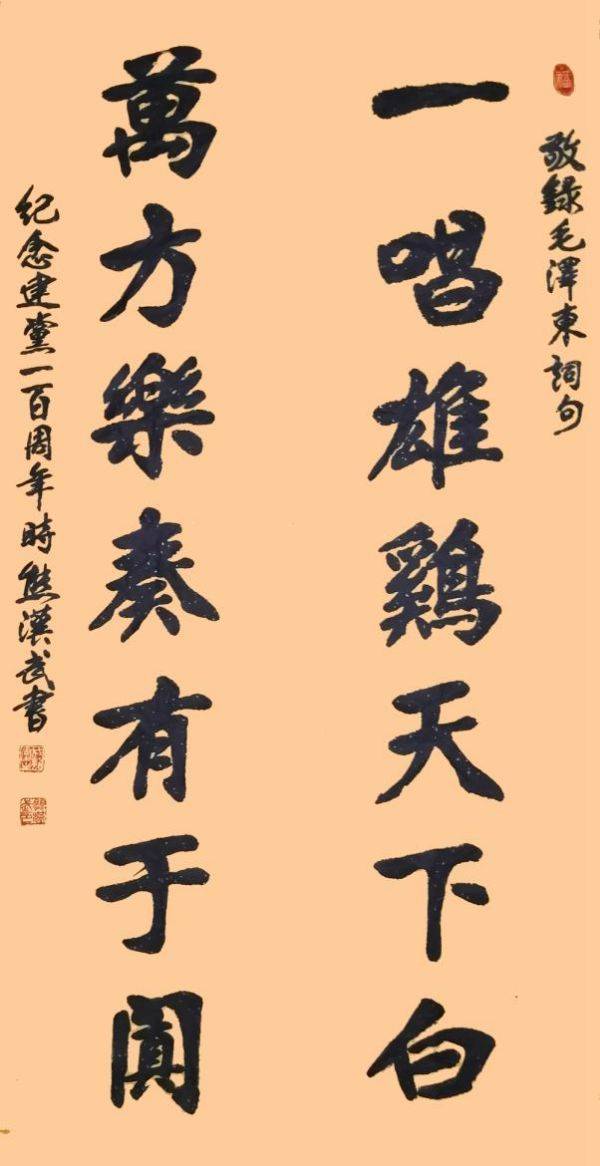 敬錄毛澤東詞句
一唱雄鷄天下白
萬方樂奏有于闐
紀念建黨一百周年時熊漢武書